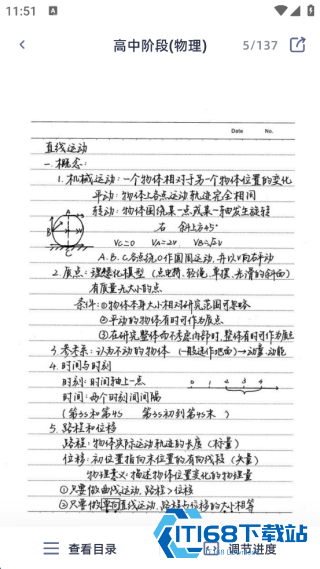 11:51
高中阶段(物理)
5/137
Date
No.
直线运动
一.概念:
1.机械运动:一个物体相对于另一个物体位置的变化
平动:物体上各点运动轨迹完全相同
转动:物体围绕某一点或某一轴发生旋转
右 斜上方45°
Vc=0 VA=2v VB=√2v
A.B.C各点绕O作圆周运动,并以v向右平动
2.质点:理想化模型(点电荷、轻绳、单摆、光滑的斜面)
有质量无大小的点
条件:①物体本身大小相对研究范围可忽略
②平动的物体有时可作为质点
③在研究整体而不考虑内部时,整体有时可作为质点
3.参考系:认为不动的物体(一般选作地面)→动量、动能
4.时间与时刻
时刻:时间轴上一点
0 1 2 3 4
时间:两个时刻间间隔
(第3s和第4s 第3s初到第4s末)
5.路程和位移
路程:物体实际运动轨迹的长度(标量)
位移:初位置指向末位置的有向线段(矢量)
物理意义:描述物体位置变化的物理量
①只要做曲线运动,路程>位移
②只要做单向直线运动,路程与位移的大小相等
查看目录
调节进度
IT168下载站